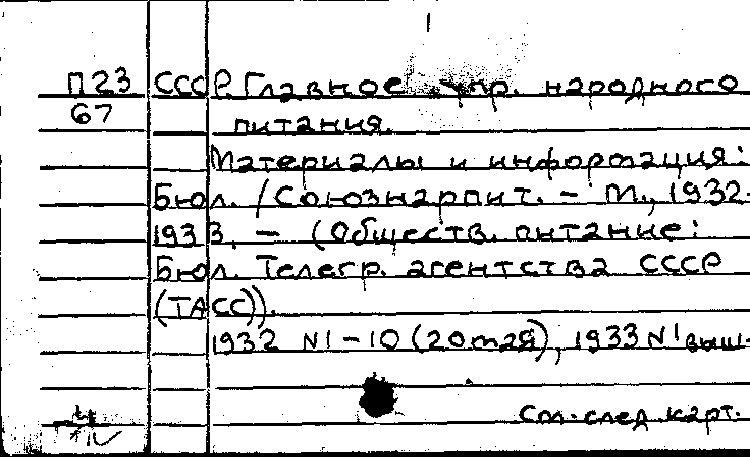 П23 СССР. Главное упр. народного
67 питания.
Материалы и информация:
Бюл. /Союзнарпит. – М., 1932-
1933. – (Обществ. питание:
Бюл. Телегр. агентства СССР
(ТАСС)).
1932 N1-10 (20 мая), 1933 N1 выш.
См. след. карт.